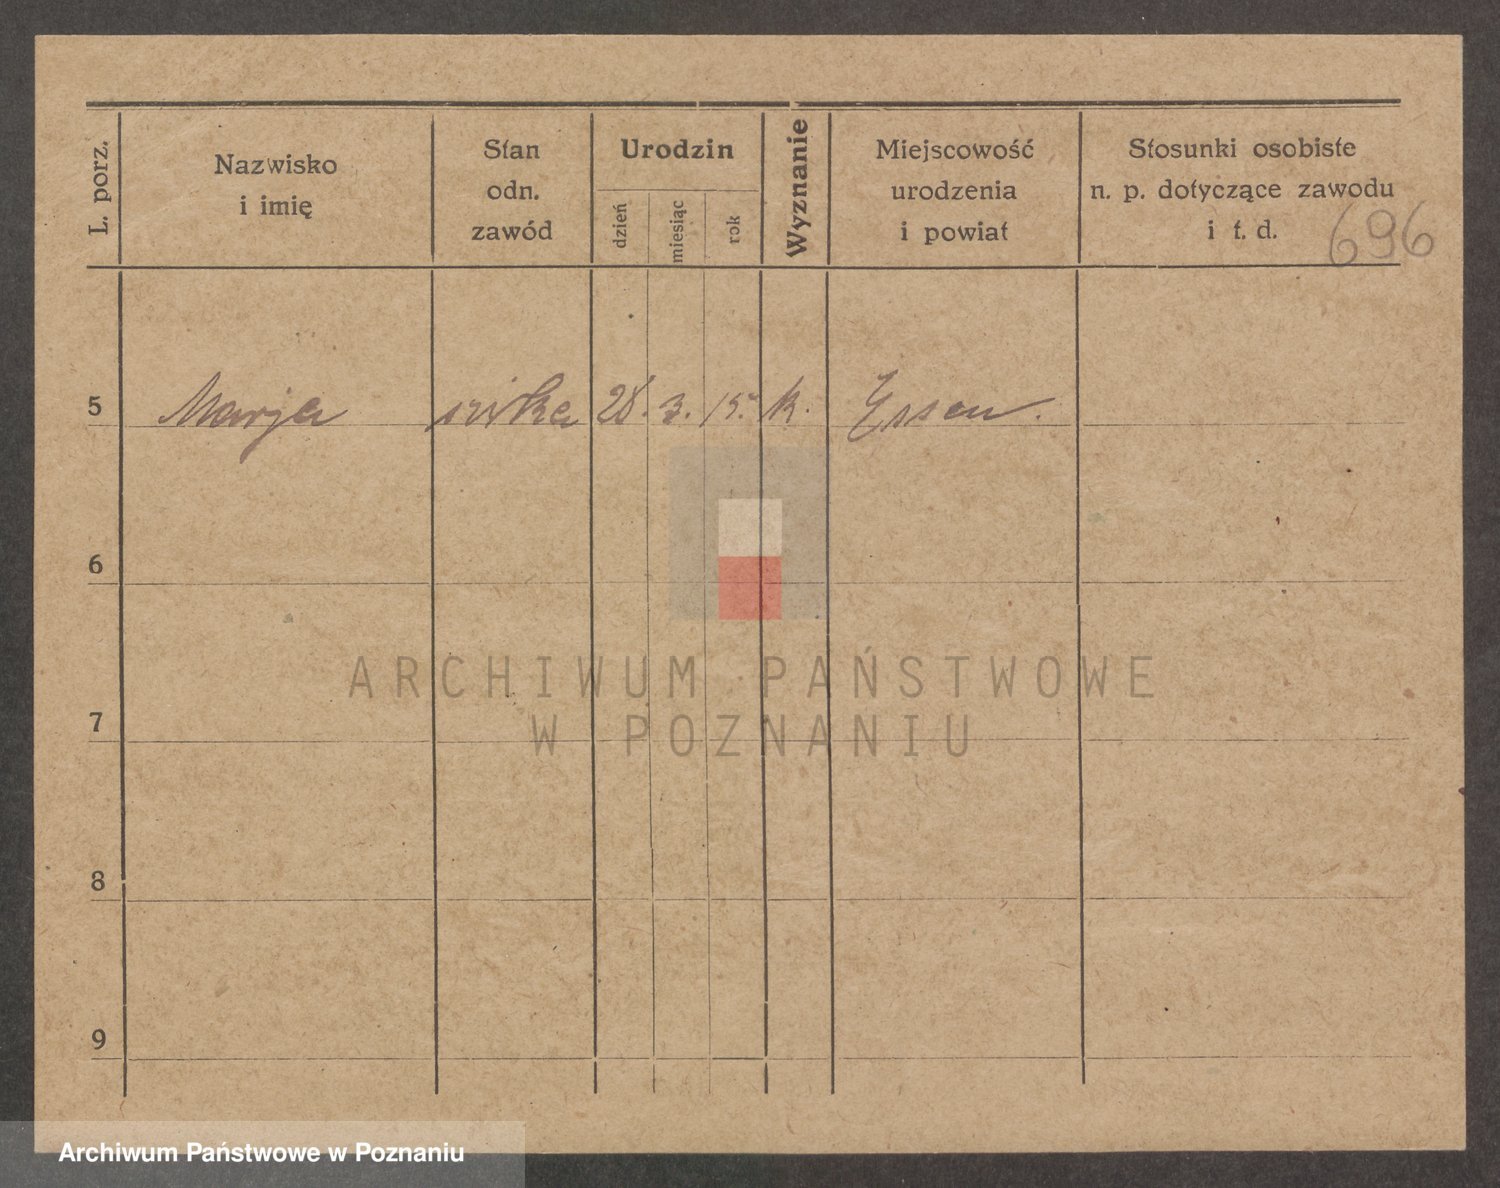 L. porz.
Nazwisko
i imię
Stan
odn.
zawód
Urodzin
dzień
miesiąc
rok
Wyznanie
Miejscowość
urodzenia
i powiat
Stosunki osobiste
n. p. dotyczące zawodu
i t. d.
696
5 Marja 28. 3. 15. k. Essen.
6
7
8
9
ARCHIWUM PAŃSTWOWE
W POZNANIU
Archiwum Państwowe w Poznaniu